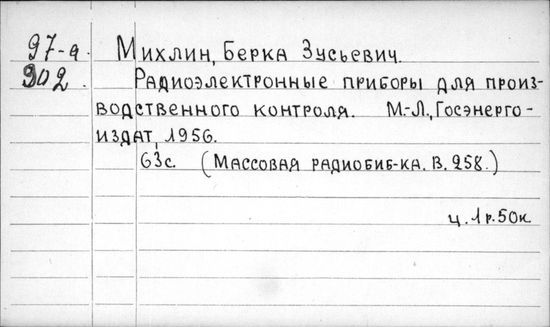 97-а. Михлин, Берка Зусьевич.
302. Радиоэлектронные приборы для произ-
водственного контроля. М.-Л., Госэнерго-
издат, 1956.
63с. (Массовая радиобиб-ка. В. 258.)
ц. 1 р. 50к